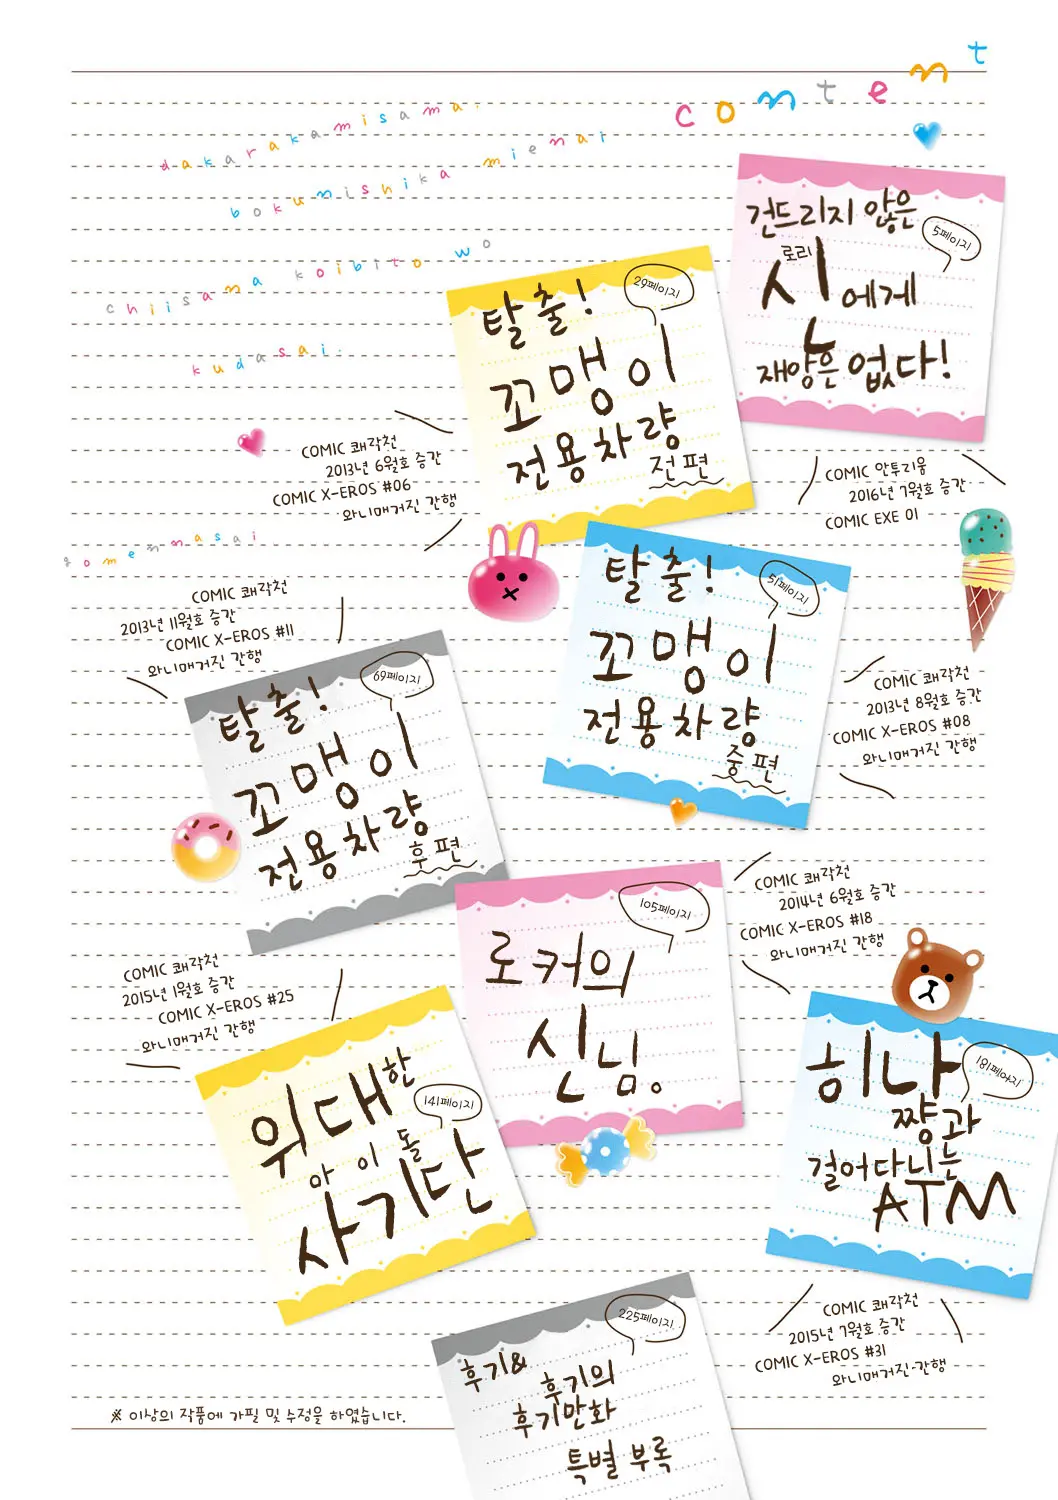 content
dakarakamisama.
bokunishika mienai
chiisana koibito wo
kudasai.
gomennasai
건드리지 않은
로리
신에게
재앙은 없다!
5페이지
COMIC 안투리움
2016년 7월호 증간
COMIC EXE 01
탈출!
꼬맹이
전용차량
전편
29페이지
COMIC 쾌락천
2013년 6월호 증간
COMIC X-EROS #06
와니매거진 간행
탈출!
꼬맹이
전용차량
중편
51페이지
COMIC 쾌락천
2013년 8월호 증간
COMIC X-EROS #08
와니매거진 간행
탈출!
꼬맹이
전용차량
후편
69페이지
COMIC 쾌락천
2013년 11월호 증간
COMIC X-EROS #11
와니매거진 간행
로커의
신님。
105페이지
COMIC 쾌락천
2014년 6월호 증간
COMIC X-EROS #18
와니매거진 간행
위대한
아이돌
사기단
141페이지
COMIC 쾌락천
2015년 1월호 증간
COMIC X-EROS #25
와니매거진 간행
히나
쨩과
걸어다니는
ATM
181페이지
COMIC 쾌락천
2015년 7월호 증간
COMIC X-EROS #31
와니매거진·간행
후기&
후기의
후기만화
특별 부록
225페이지
※ 이상의 작품에 가필 및 수정을 하였습니다.